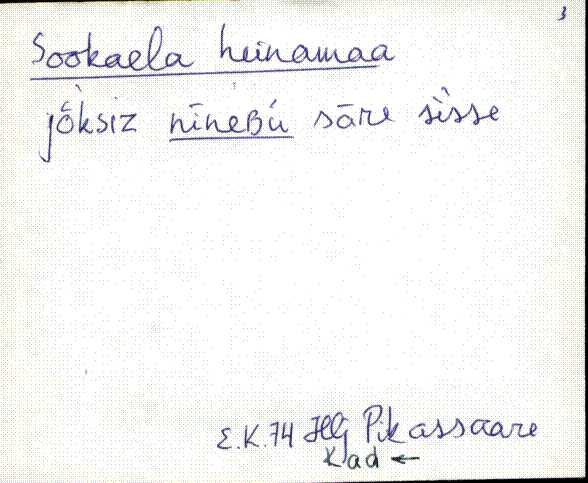 3
Sookaela heinamaa
jõ̀ksiz nīneBù sāre sìsse
E.K.74 Pikassaare
Kad ←